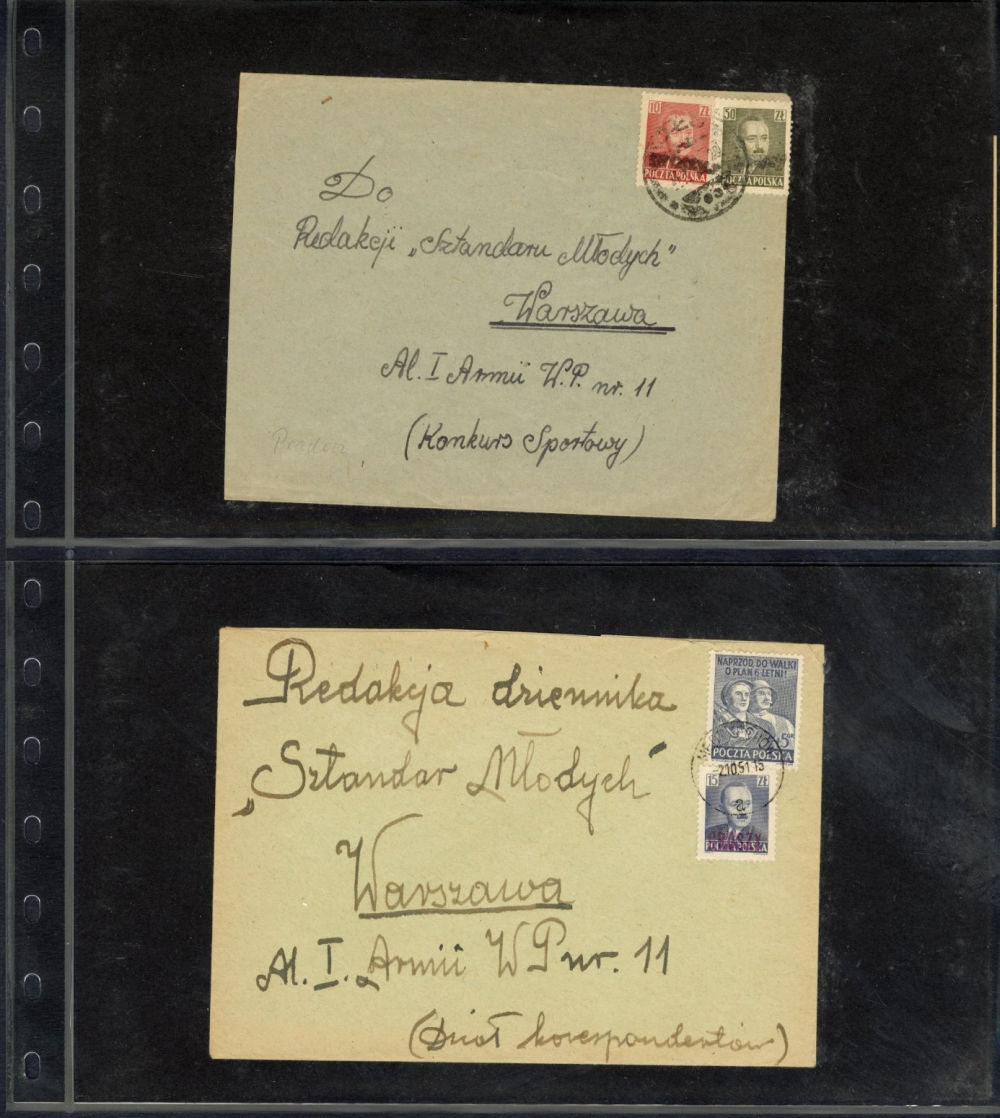 10 ZŁ
POCZTA POLSKA
50 ZŁ
POCZTA POLSKA
Do
Redakcji „Sztandaru Młodych"
Warszawa
Al. I Armii W.P. nr. 11
(Konkurs Sportowy)
NAPRZÓD, DO WALKI
O PLAN 6-LETNI!
POCZTA POLSKA
2.10.51.15
a
15 ZŁ
GROSZY
POCZTA POLSKA
Redakcja dziennika
„Sztandar Młodych"
Warszawa
Al. I. Armii WP nr. 11
(Dział korespondentów)